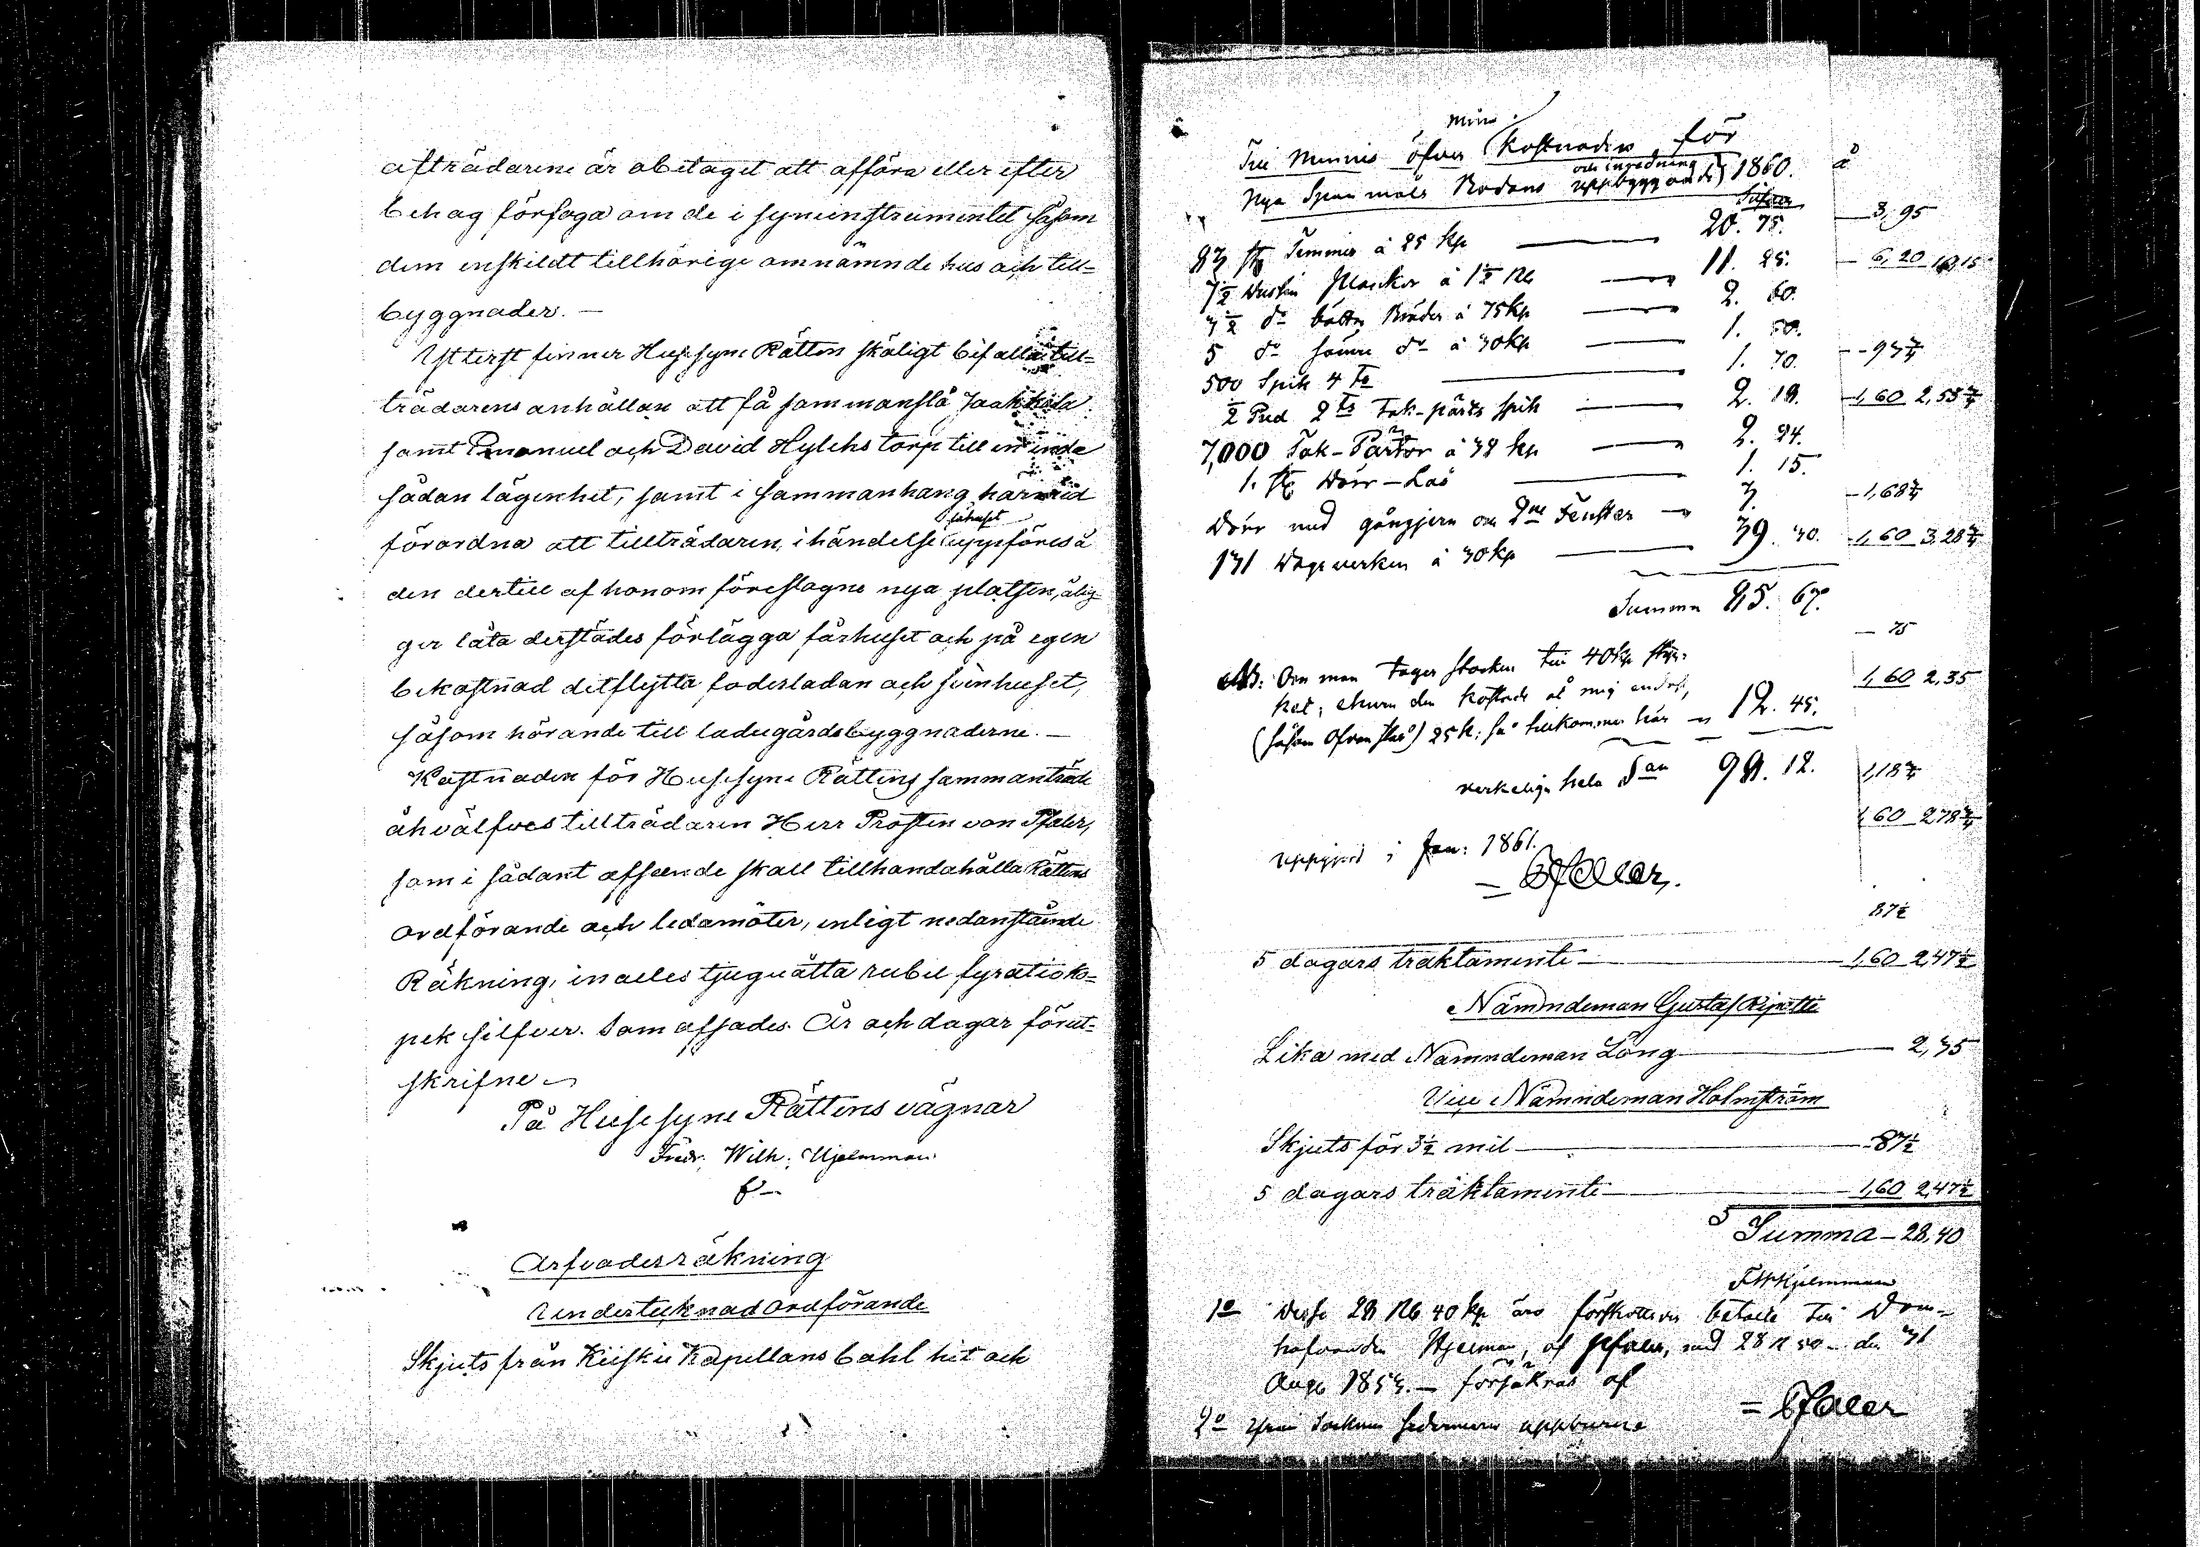 afträdarene är obetaget att afföra eller efter
behag förfoga om de i syneinstrumentet såsom
dem enskildt tillhörige omnämnde hus och till=
byggnader. —
Ytterst finner Husesyne Rätten skäligt bifalla till=
trädarens anhållan att få sammanslå Jaakkola
samt Emanuel och David Hylkhs torp till en enda
sådan lägenhet, samt i sammanhang härmed
förordna att tillträdaren, i händelse fähuset uppföres å
den dertill af honom föreslagne nya platsen, ålig=
ger låta derstädes förlägga fårhuset och på egen
bekostnad ditflytta foderladan och svinhuset,
såsom hörande till ladugårdsbyggnaderne. —
Kostnaden för Husesyne Rättens sammanträde
åhvälfves tillträdaren Herr Prosten von Pfaler,
som i sådant afseende skall tillhandahålla Rättens
ordförande och ledamöter, enligt nedanstående
Räkning, inalles tjuguåtta rubel fyratio ko=
pek silfver. Som afsades. År och dagar förut=
skrifne
På Husesyne Rättens vägnar
Fredr. Wilh. Hjelmman
Arfvodesräkning
Undertecknad ordförande
Skjuts från Kiiskis Kapellans bohl hit och
Till Minnes öfver mine kostnader för
Nya Spanmåls Bodans uppbyggande och inredning 1860.
Silfver
83 st Timmer à 25 kp — 20. 75.
7½ Dussin Plankor à 1½ Rb — 11. 25.
3½ do bättre Bräder à 75 kp — 2. 60.
5 do sämre do à 30 kp — 1. 50.
500 Spik 4 — 1. 70.
½ Pud 2 Tak-pärts spik — 2. 19.
7,000 Tak-Pärtor à 32 kp — 2. 24.
1. st Dörr-Lås — 1. 15.
Dörr med gångjern om 2ne Fenster — 3.
131 Dagsverken à 30 kp — 39. 30.
Summa 85. 67.
NB: Om man tager stocken till 40 kp styc-
ket, ehuru den kostade åt mig endast,
(såsom ofvan står) 25 k: så tillkommer här — 12. 45.
verkeliga hela 98. 12.
uppgjord i Jan: 1861.
Pfaler.
à
3,95
6,20 10,15
93¾
1,60 2,53¾
1,68¾
1,60 3,28¾
75
1,60 2,35
1,18¾
1,60 2,78¾
87½
5 dagars traktamente — 1,60 2,47½
Nämndeman Gustaf Ripatti
Lika med Nämndeman Lång — 2,35
Vice Nämndeman Holmström
Skjuts för 3½ mil — 87½
5 dagars traktamente — 1,60 2,47½
Summa — 28,40
FWHjelmman
1o Desse 28 Rb 40 kp äro förskottsvis betalte till Dom-
hafvanden Hjelmman, af Pfaler, med 28 R 50 — den 31
Aug 1853. — försäkras af
= Pfaler
2o uppburne